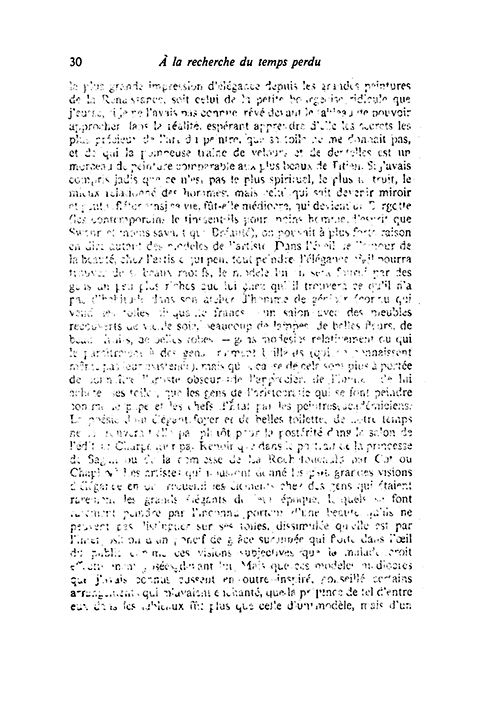 30 À la recherche du temps perdu
le plus grande impression d'élégance depuis les grandes peintures
de la Renaissance, soit celui de la petite bourgeoise ridicule que
j'eusse, si je ne l'avais pas connue, rêvé devant le tableau de pouvoir
approcher dans la réalité, espérant apprendre d'elle les secrets les
plus précieux de l'art du peintre, que sa toile ne me donnait pas,
et de qui la pompeuse traîne de velours et de dentelles est un
morceau de peinture comparable aux plus beaux de Titien. Si j'avais
compris jadis que ce n'est pas le plus spirituel, le plus instruit, le
mieux relationné des hommes, mais celui qui sait devenir miroir
et peut refléter ainsi sa vie, fût-elle médiocre, qui devient un Bergotte
(les contemporains le tinssent-ils pour moins homme d'esprit que
Swann et moins savant que Bréauté), on pouvait à plus forte raison
en dire autant des modèles de l'artiste. Dans l'éveil de l'amour de
la beauté, chez l'artiste qui peut tout peindre, l'élégance
des
gens un peu plus riches que lui chez qui il trouvera ce qu'il n'a
pas d'habitude dans son atelier d'homme de génie méconnu qui
vend ses toiles cinquante francs : un salon avec des meubles
recouverts de vieille soie, beaucoup de lampes, de belles fleurs, de
beaux fruits, de belles robes — gens modestes relativement ou qui
le paraîtraient à des gens vraiment brillants (qui ne connaissent
même pas leur existence), mais qui, à cause de cela, sont plus à portée
de connaître l'artiste obscur, de l'apprécier, de l'inviter, de lui
acheter ses toiles, que les gens de l'aristocratie qui se font peindre
comme le pape et les chefs d'État par les peintres académiciens.
La poésie d'un élégant foyer et de belles toilettes de notre temps
ne se trouvera-t-elle pas plutôt pour la postérité dans le salon de
l'éditeur Charpentier par Renoir que dans le portrait de la princesse
de Sagan ou de la comtesse de La Rochefoucauld par Cot ou
Chaplin? Les artistes qui nous ont donné les plus grandes visions
d'élégance en ont recueilli les éléments chez des gens qui étaient
rarement les grands élégants de leur époque, lesquels se font
rarement peindre par l'inconnu porteur d'une beauté qu'ils ne
peuvent pas distinguer sur ses toiles, dissimulée qu'elle est par
l'interposition d'un poncif de grâce surannée qui flotte dans l'œil
du public comme ces visions subjectives que le malade croit
effectivement posées devant lui. Mais que ces modèles médiocres
que j'avais connus eussent en outre inspiré, conseillé certains
arrangements qui m'avaient enchanté, que la présence de tel d'entre
eux dans les tableaux fût plus que celle d'un modèle, mais d'un